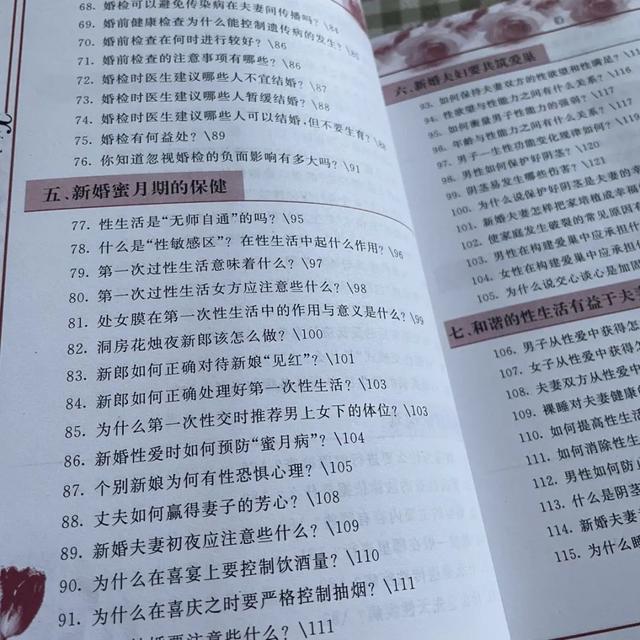 68. 婚检可以避免传染病在夫妻间传播吗? \84
69. 婚前健康检查为什么能控制遗传病的发生?
70. 婚前检查在何时进行较好? \86
71. 婚前检查的注意事项有哪些? \86
72. 婚检时医生建议哪些人不宜结婚? \87
73. 婚检时医生建议哪些人暂缓结婚? \88
74. 婚检时医生建议哪些人可以结婚,但不要生育? \88
75. 婚检有何益处? \89
76. 你知道忽视婚检的负面影响有多大吗? \91
五、新婚蜜月期的保健
77. 性生活是“无师自通”的吗? \95
78. 什么是“性敏感区”? 在性生活中起什么作用? \96
79. 第一次过性生活意味着什么? \97
80. 第一次过性生活女方应注意些什么? \98
81. 处女膜在第一次性生活中的作用与意义是什么? \99
82. 洞房花烛夜新郎该怎么做? \100
83. 新郎如何正确对待新娘“见红”? \101
84. 新郎如何正确处理好第一次性生活? \103
85. 为什么第一次性交时推荐男上女下的体位? \103
86. 新婚性爱时如何预防“蜜月病”? \104
87. 个别新娘为何有性恐惧心理? \105
88. 丈夫如何赢得妻子的芳心? \108
89. 新婚夫妻初夜应注意些什么? \109
90. 为什么在喜宴上要控制饮酒量? \110
91. 为什么在喜庆之时要严格控制抽烟? \111
要注意些什么? \111
六、新婚夫妇要共筑爱巢
93. 如何保持夫妻双方的性欲望和性满足?
94. 性欲望与性能力之间有什么关系? \116
95. 如何衡量男子性能力的强弱? \117
96. 年龄与性能力之间有什么关系?
97. 男子一生性功能变化规律如何?
98. 男性如何保护好阴茎? \120
99. 阴茎易发生哪些伤害? \121
100. 为什么说保护好阴茎是夫妻的幸
101. 新婚夫妻怎样把家培植成幸福
102. 使家庭发生破裂的常见原因有
103. 男性在构建爱巢中应承担什
104. 女性在构建爱巢中应承担
105. 为什么说交心谈心是加固
七、和谐的性生活有益于夫妻
106. 男子从性爱中获得怎
107. 女子从性爱中获得
108. 夫妻双方从性爱中
109. 裸睡对夫妻健康
110. 如何提高性生活
111. 如何消除性生
112. 男性如何防止
113. 什么是阴茎
114. 新婚夫妻
115. 为什么